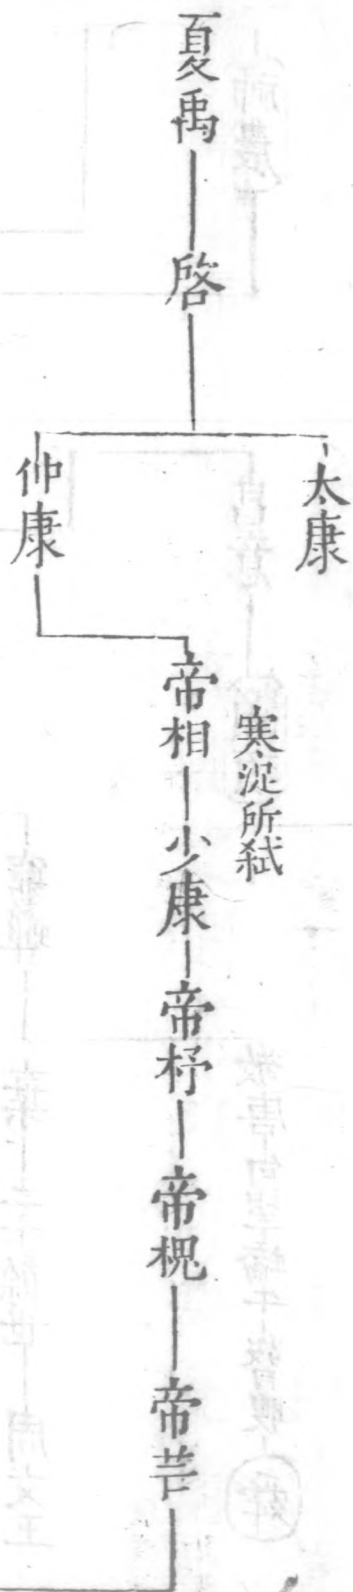 夏禹
啓
太康
仲康
寒浞所弑
帝相
少康
帝杼
帝槐
帝芒